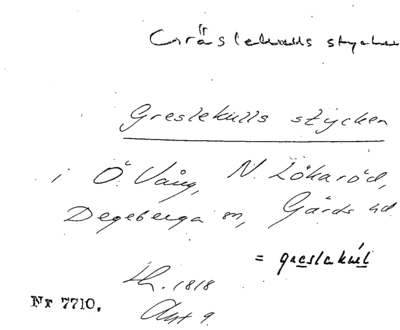 Gräslekulls stycken
Greslekulls stycken
i Ö. Vång, N. Lökaröd,
Degeberga sn, Gärds hd
= greslakúl
Lh. 1818
Akt 9.
Nr 7710.